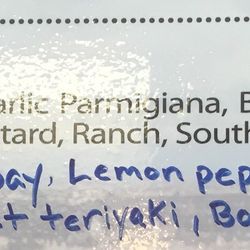 arlic Parmigiana, B
tard, Ranch, South
bay, Lemon pep
t teriyaki, Ba